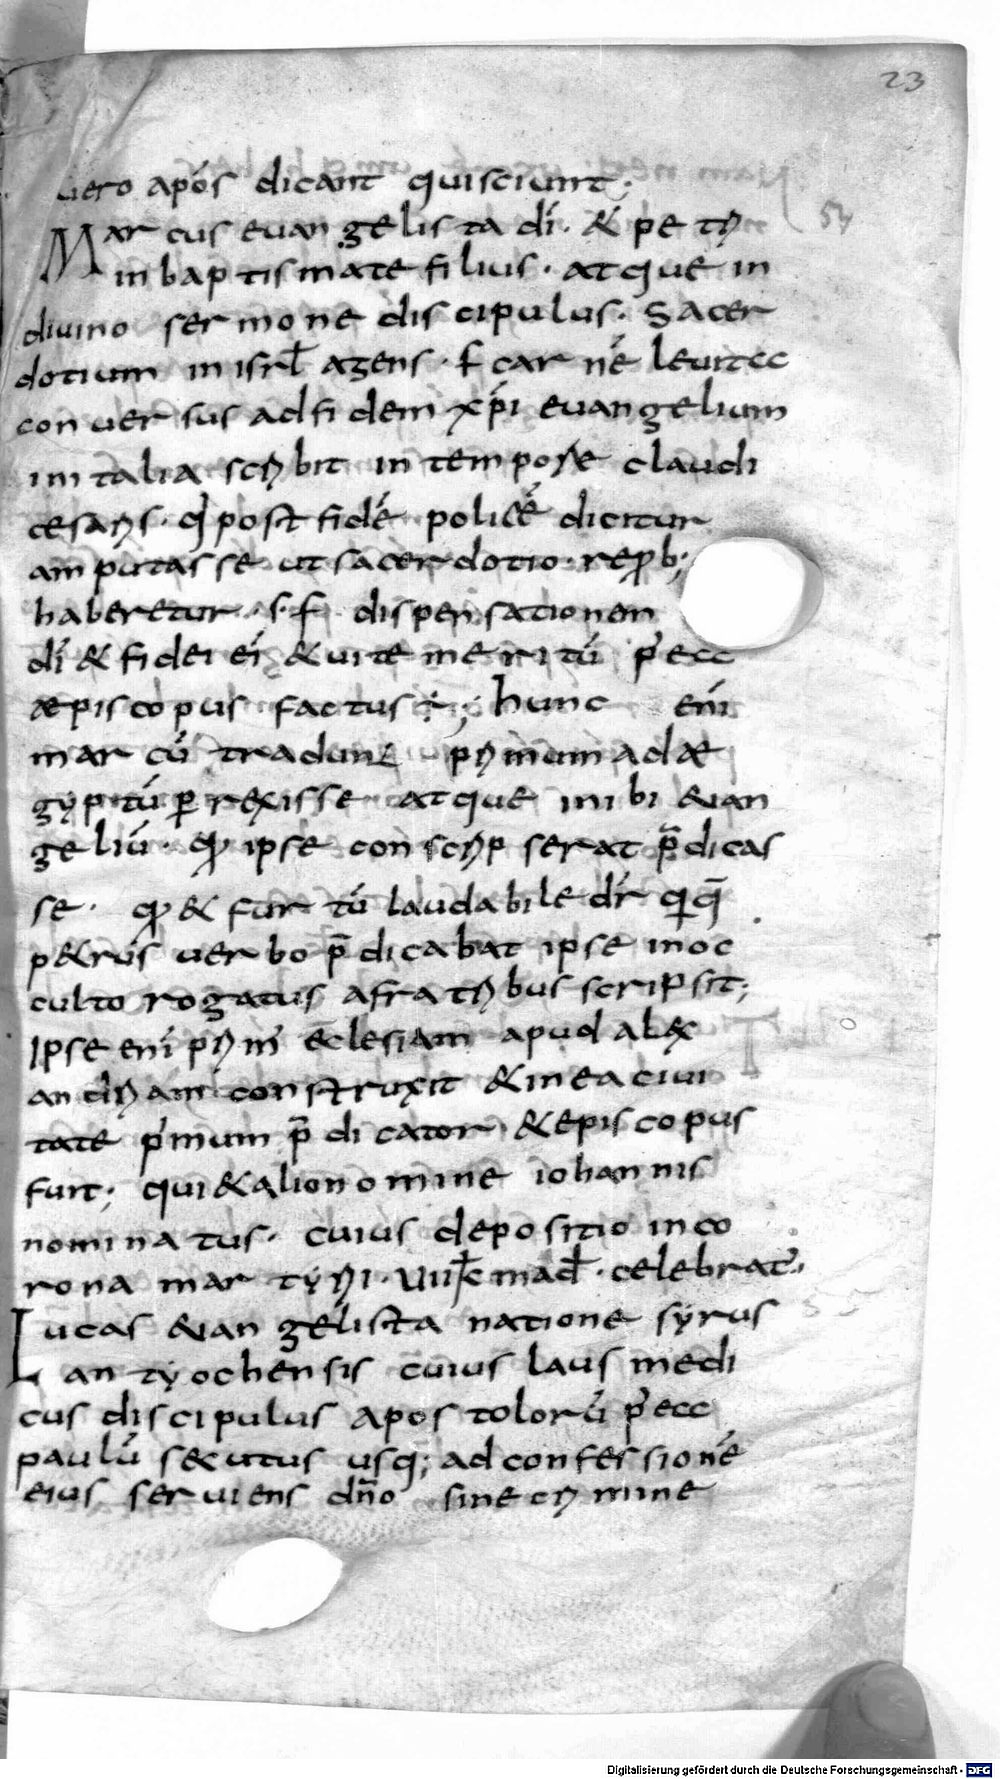 23
uero apos̄ dicant qui sciunt;
54
Marcus euangelista dī. & petri
in baptismate filius. atque in
diuino sermone discipulus. Sacer
dotium in isrł agens. s̄ carnē leuita
conuersus ad fidem xp̄i euangelium
in italia scribit in tempore claudi
cesaris. q̄ post fidē policē dicitur
amputasse ut sacerdotio. reprob;
haberetur. s. s̄ dispensationem
dī & fidei eī & uite meritū p̄ecc
æpiscopus factus ÷; hunc enī
marcū tradunt primum ad æ
gyptū perrexisse atque inibi euan
geliū. qd ipse conscripserat p̄dicas
se. qd & furtū laudabile dr̄ quiq̄
petrus uerbo p̄dicabat ipse in oc
culto rogatus a fratribus scripsit;
Ipse enī prim̄ eclesiam apud alex
andriam construxit & in ea ciui
tate p̄mum p̄dicator & episcopus
fuit; qui & alio nomine iohannis
nominatus. cuius depositio in co
rona martyri. uii kł mad̄. celebrat̄.
Lucas euangelista natione syrus
antyochensis cuius laus medi
cus discipulus apostolorū p̄ecc
paulū secutus usq; ad confessionē
eius seruiens dn̄o sine crimine
Digitalisierung gefördert durch die Deutsche Forschungsgemeinschaft - DFG